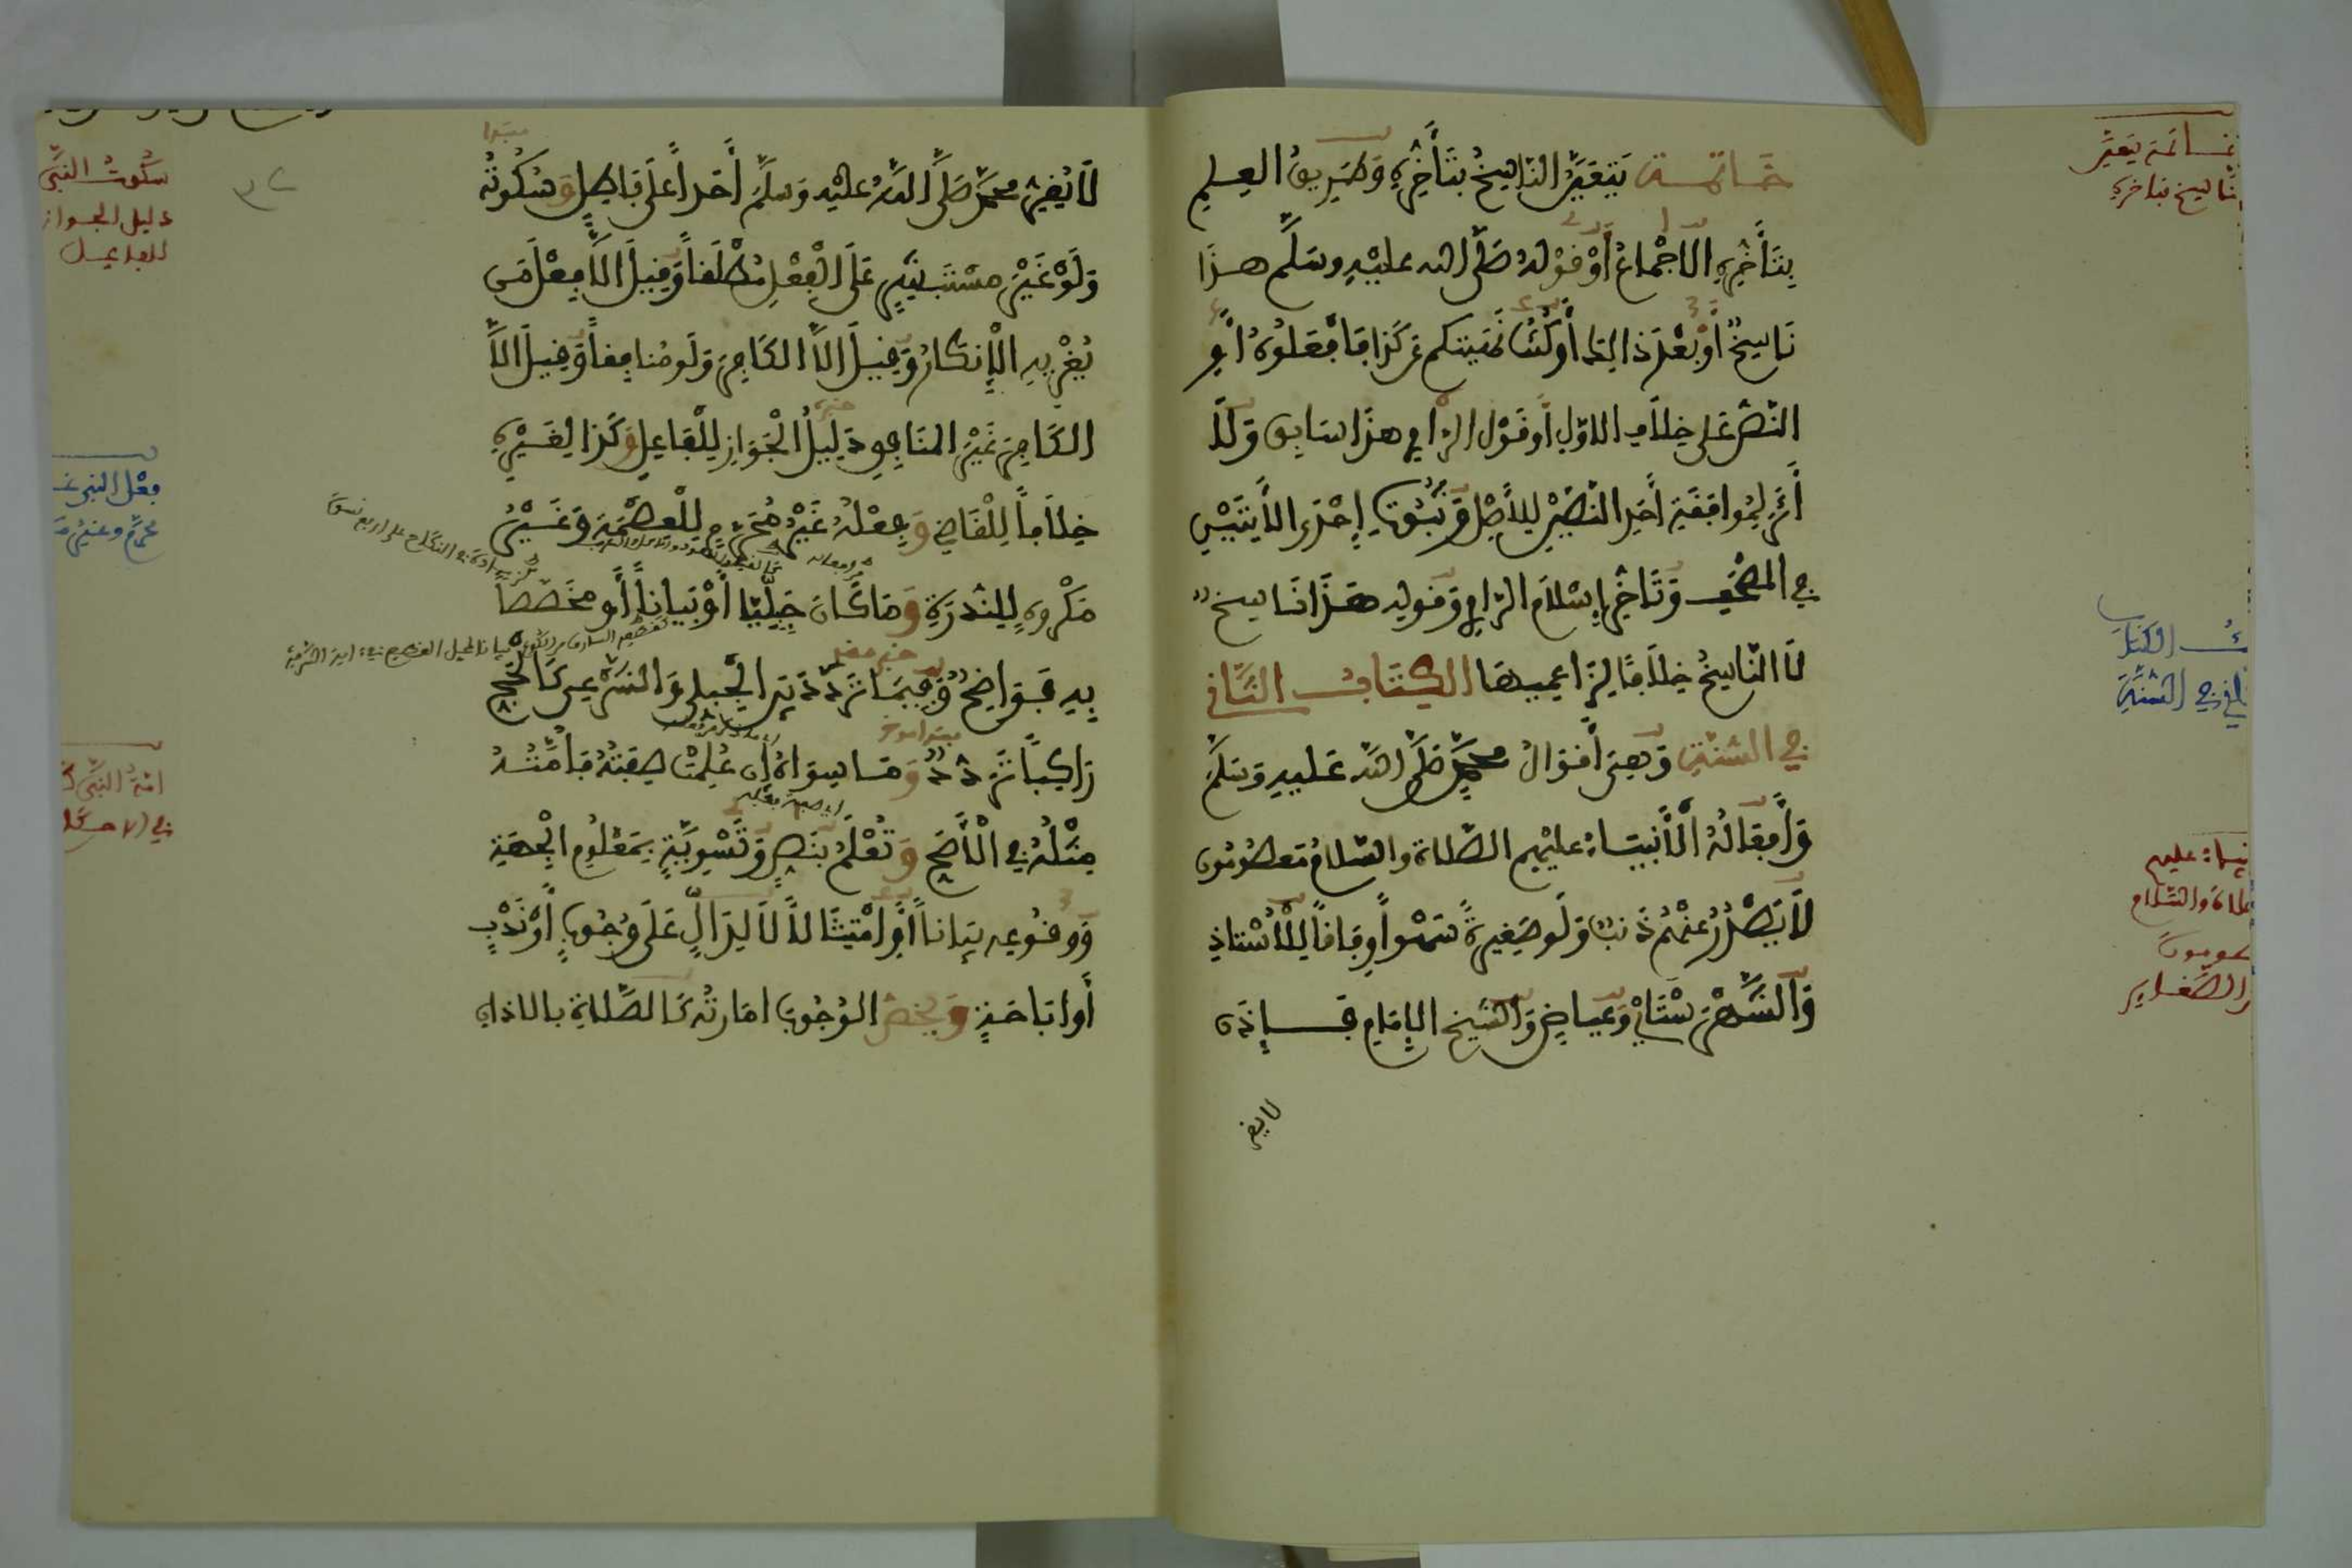 خاتمة يتعين الناسخ بتأخره وطريق العلم
بتأخره الاجماع أو قوله صلى الله عليه وسلم هذا
ناسخ أو بعد ذاك أو كنت نهيتكم عن كذا فافعلوه أو
النص على خلاف الاول أو قول الراوي هذا سابق ولا
أثر لموافقة أحد النصين للأصل وثبوت إحدى الأيتين
في المصحف وتأخر إسلام الراوي وقوله هذا ناسخ
لا الناسخ خلافا لزاعميها الكتاب الثاني
في السنة وهي أقوال محمد صلى الله عليه وسلم
وأفعاله الأنبياء عليهم الصلاة والسلام معصومون
لا يصدر عنهم ذنب ولو صغيرة سهوا وفاقا للأستاذ
والشهرستاني وعياض والشيخ الإمام فإذن
لا يقر
خاتمة يتعين
الناسخ بتأخره
الكتاب
الثاني في السنة
الأنبياء عليهم
الصلاة والسلام
معصومون
والصغاير
لا يقر محمد صلى الله عليه وسلم أحدا على باطل وسكوته
ولو غير مستبشر على الفعل مطلقا وقيل إلا فعل من
يغريه الإنكار وقيل الا الكافر ولو منافقا وقيل الا
الكافر غير المنافق دليل الجواز للفاعل وكذا لغيره
خلافا للقاضي وفعله غير محرم للعصمة وغير
مكروه للندرة وما كان جبليا أو بيانا أو مخصصا
به فواضح وفيما تردد بين الجبلي والشرعي كالحج
راكبا تردد وما سواه إن علمت صفته فأمته
مثله في الأصح وتعلم بنص وتسوية بمعلوم الجهة
ووقوعه بيانا أو امتثالا لدال على وجوب أو ندب
أو اباحة ويخص الوجوب امارته كالصلاة بالاذان
مبتدا
خبر
٣٢
سكوت النبي
دليل الجواز
للفاعل
فعل النبي غير
محرم وغير
امة النبي